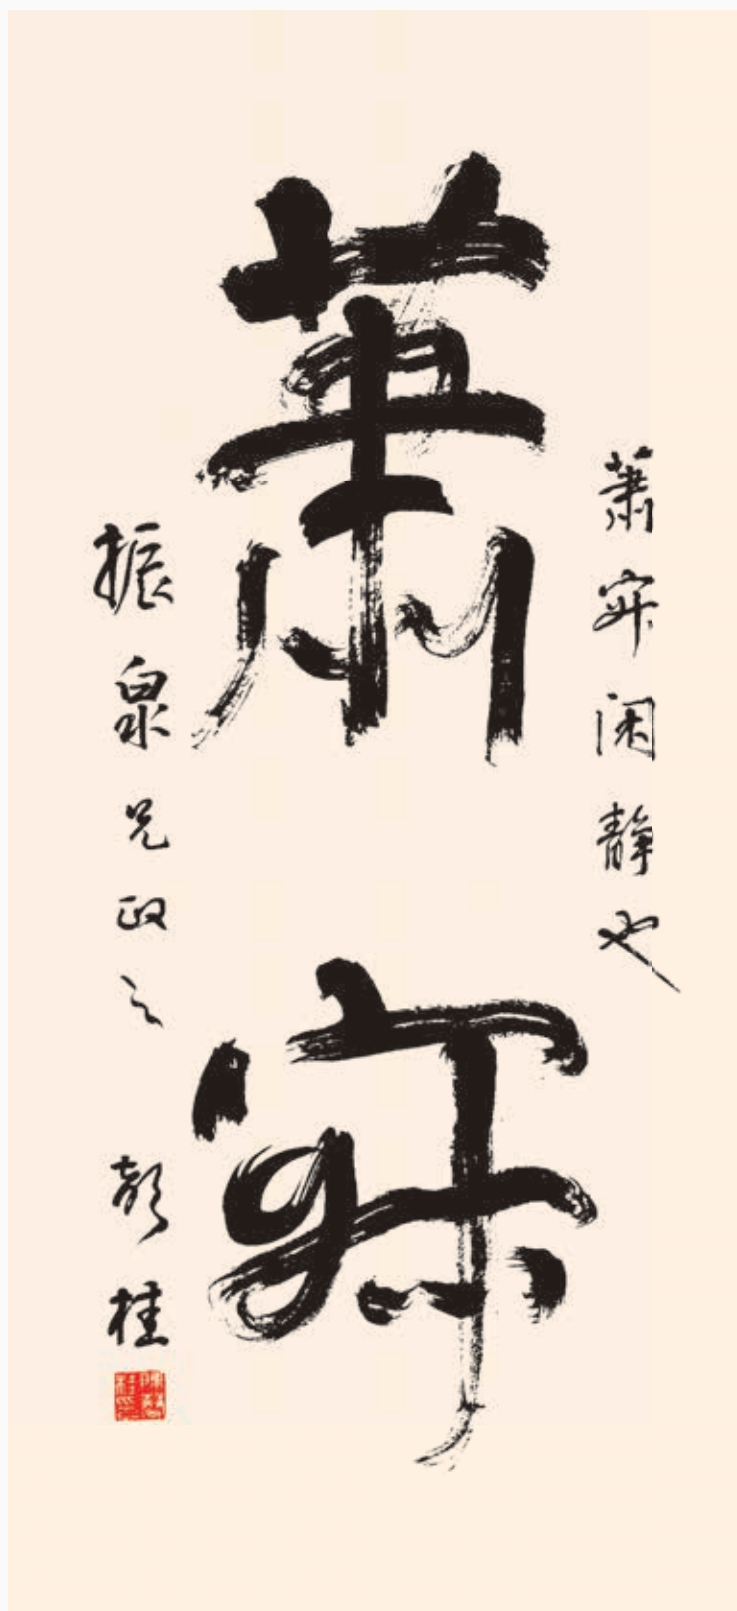 蕭寂閑静也
蕭寂
振泉兄政之 彭桂